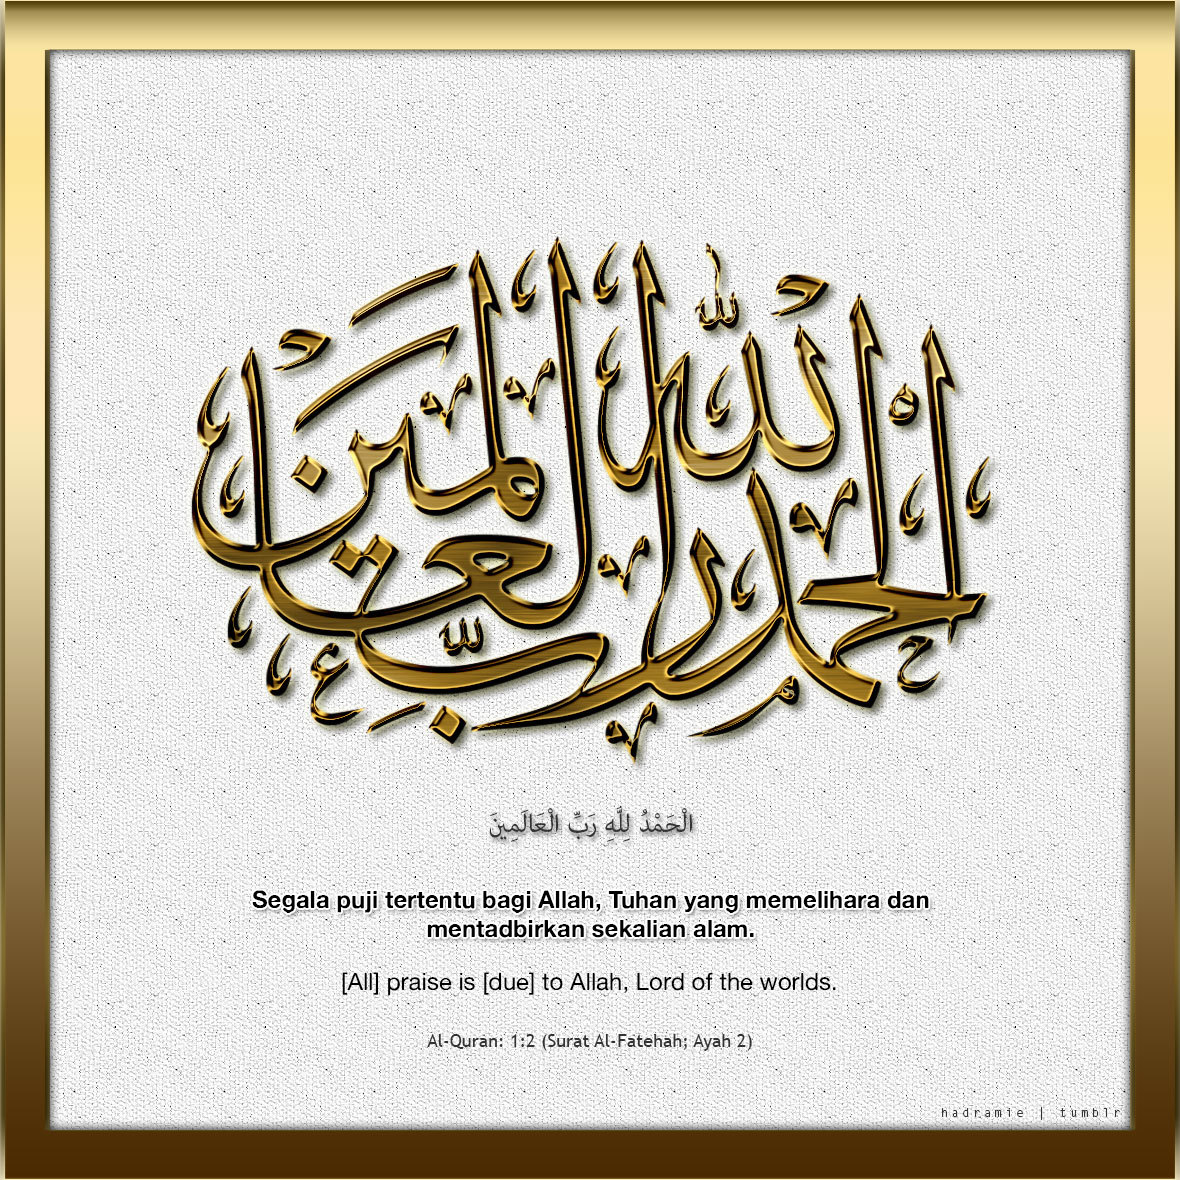 الحمد لله رب العالمين
الْحَمْدُ لِلَّهِ رَبِّ الْعَالَمِينَ
Segala puji tertentu bagi Allah, Tuhan yang memelihara dan
mentadbirkan sekalian alam.
[All] praise is [due] to Allah, Lord of the worlds.
Al-Quran: 1:2 (Surat Al-Fatehah; Ayah 2)
hadramie | tumblr